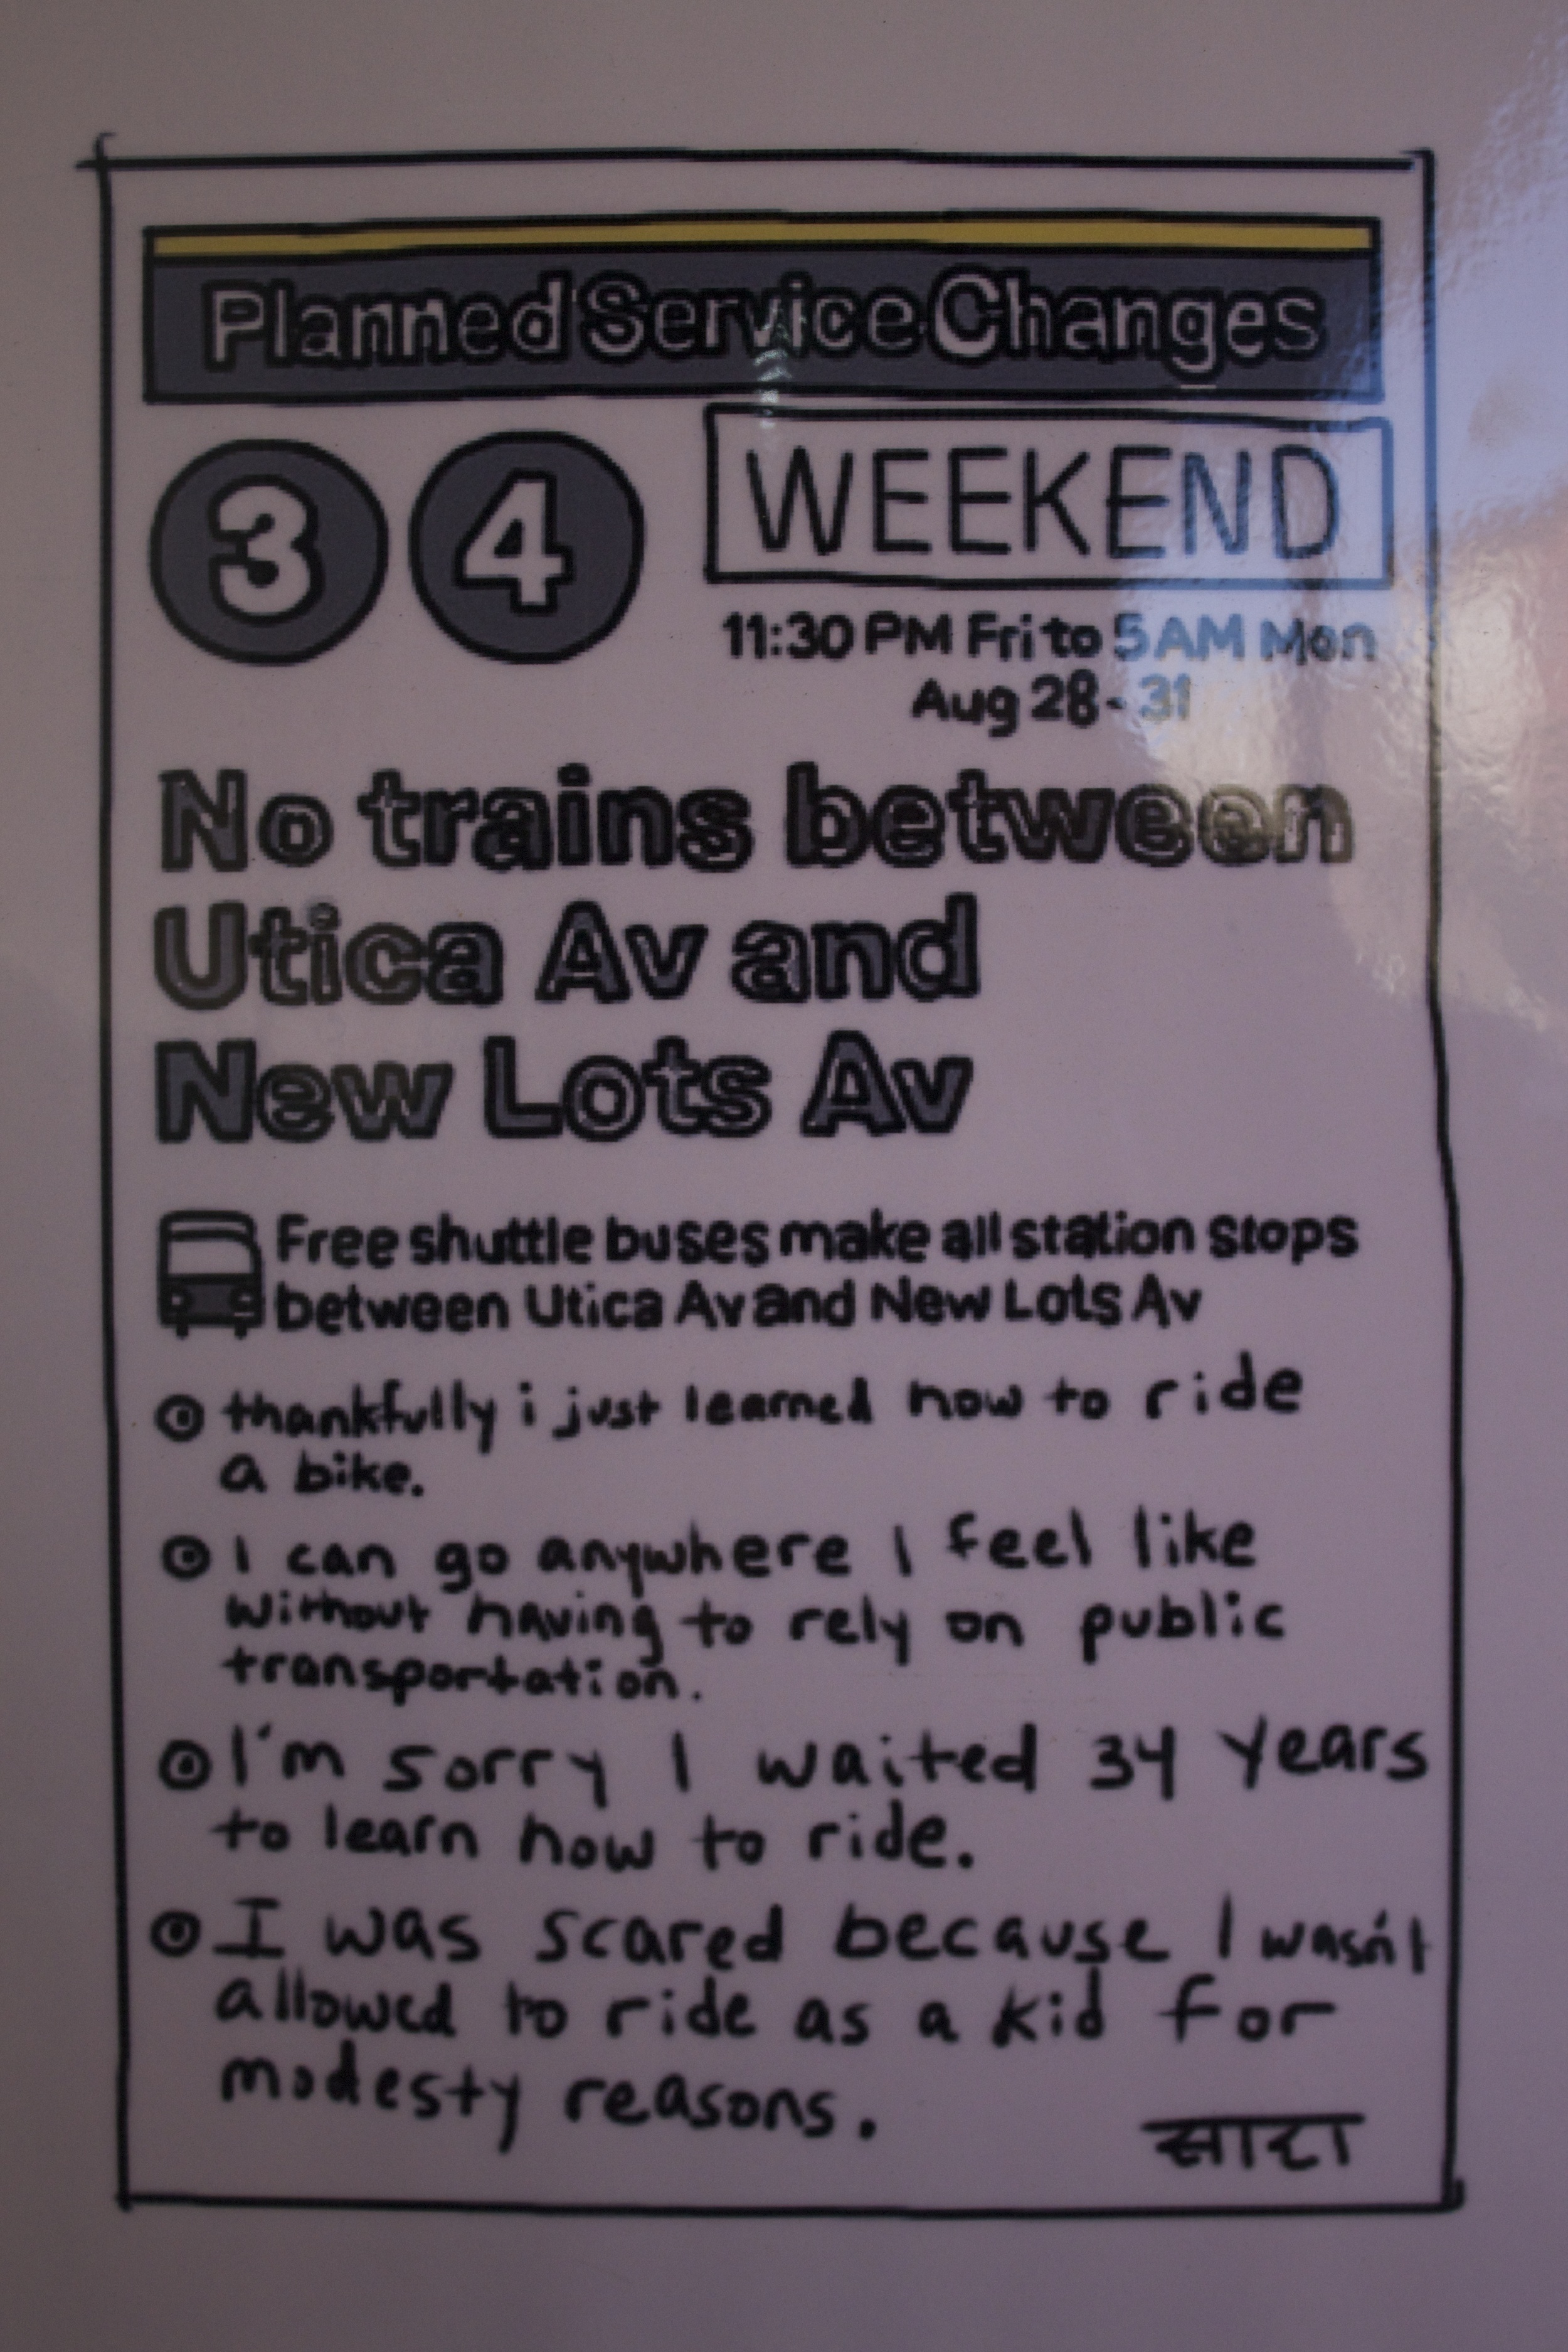 Planned Service Changes
3 4
WEEKEND
11:30 PM Fri to 5 AM Mon
Aug 28-31
No trains between
Utica Av and
New Lots Av
Free shuttle buses make all station stops
between Utica Av and New Lots Av
thankfully i just learned how to ride
a bike.
I can go anywhere I feel like
without having to rely on public
transportation.
I'm sorry I waited 34 years
to learn how to ride.
I was scared because I wasn't
allowed to ride as a kid for
modesty reasons.
सारा